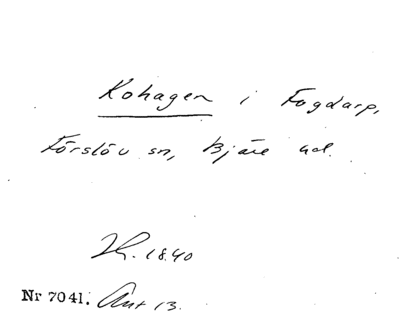 Kohagen i Fogdarp,
Förslöv sn, Bjäre hd.
1840
Nr 7041. Akt 13.